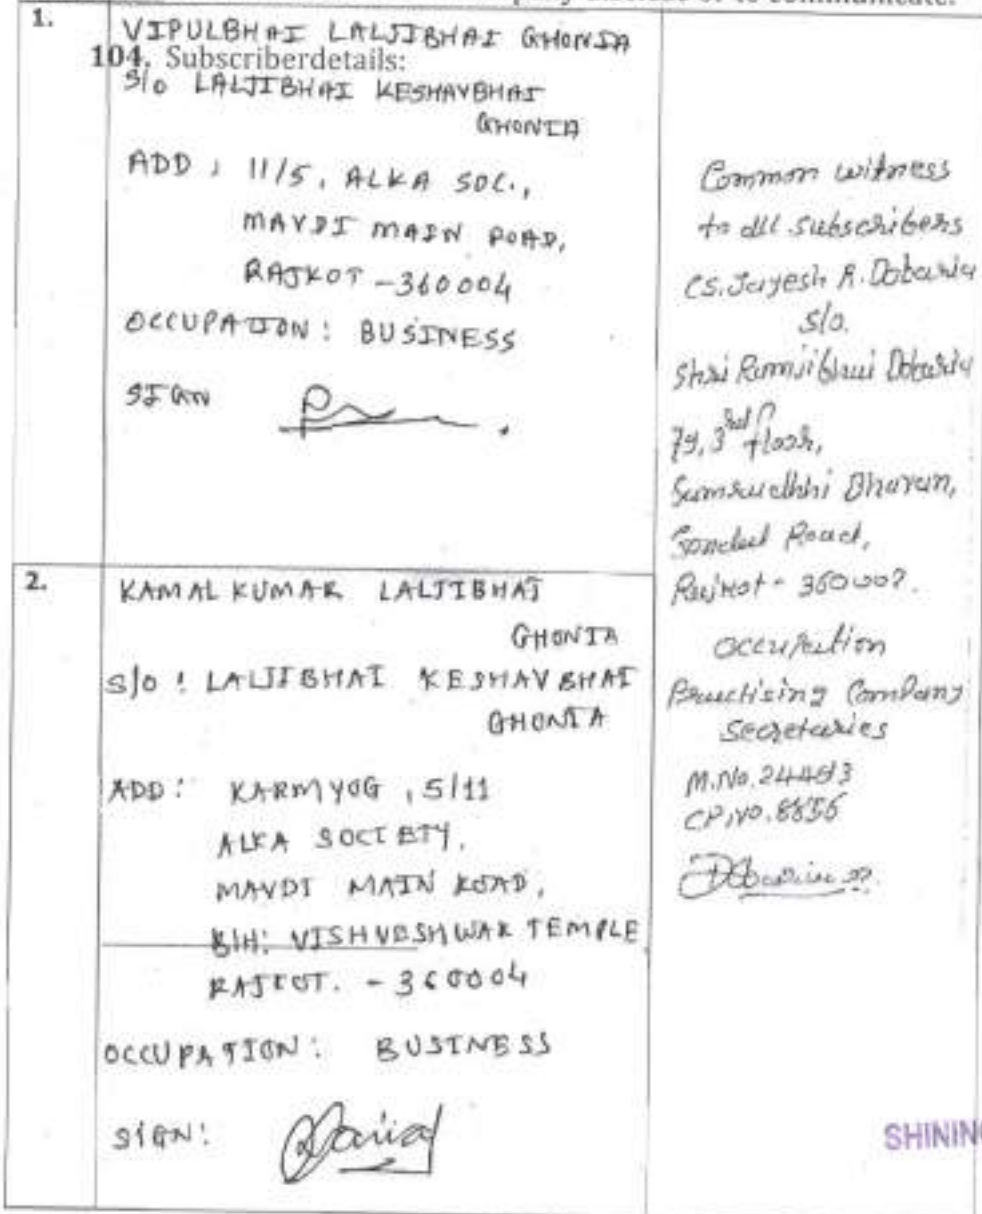 or to communicate.
1.
VIPULBHAI LALJIBHAI GHONIA
104. Subscriberdetails:
S/o LALJIBHAI KESHAVBHAI
GHONIA
ADD : 11/5, ALKA SOC.,
MAVDI MAIN ROAD,
RAJKOT - 360004
OCCUPATION: BUSINESS
SIGN
2.
KAMALKUMAR LALJIBHAI
GHONIA
S/o : LALJIBHAI KESHAVBHAI
GHONIA
ADD: KARMYOG, 5/11
ALKA SOCIETY,
MAVDI MAIN ROAD,
B/H: VISHVESHWAR TEMPLE
RAJKOT. - 360004
OCCUPATION: BUSINESS
SIGN:
Common witness
to all subscribers
CS. Jayesh R. Dobariya
S/o.
Shri Ramjibhai Dobariya
3rd floor,
Samruddhi Bhavan,
Gondal Road,
Rajkot -
Occupation
Practising Company
Secretaries
M.No.
CP.No.
SHINING